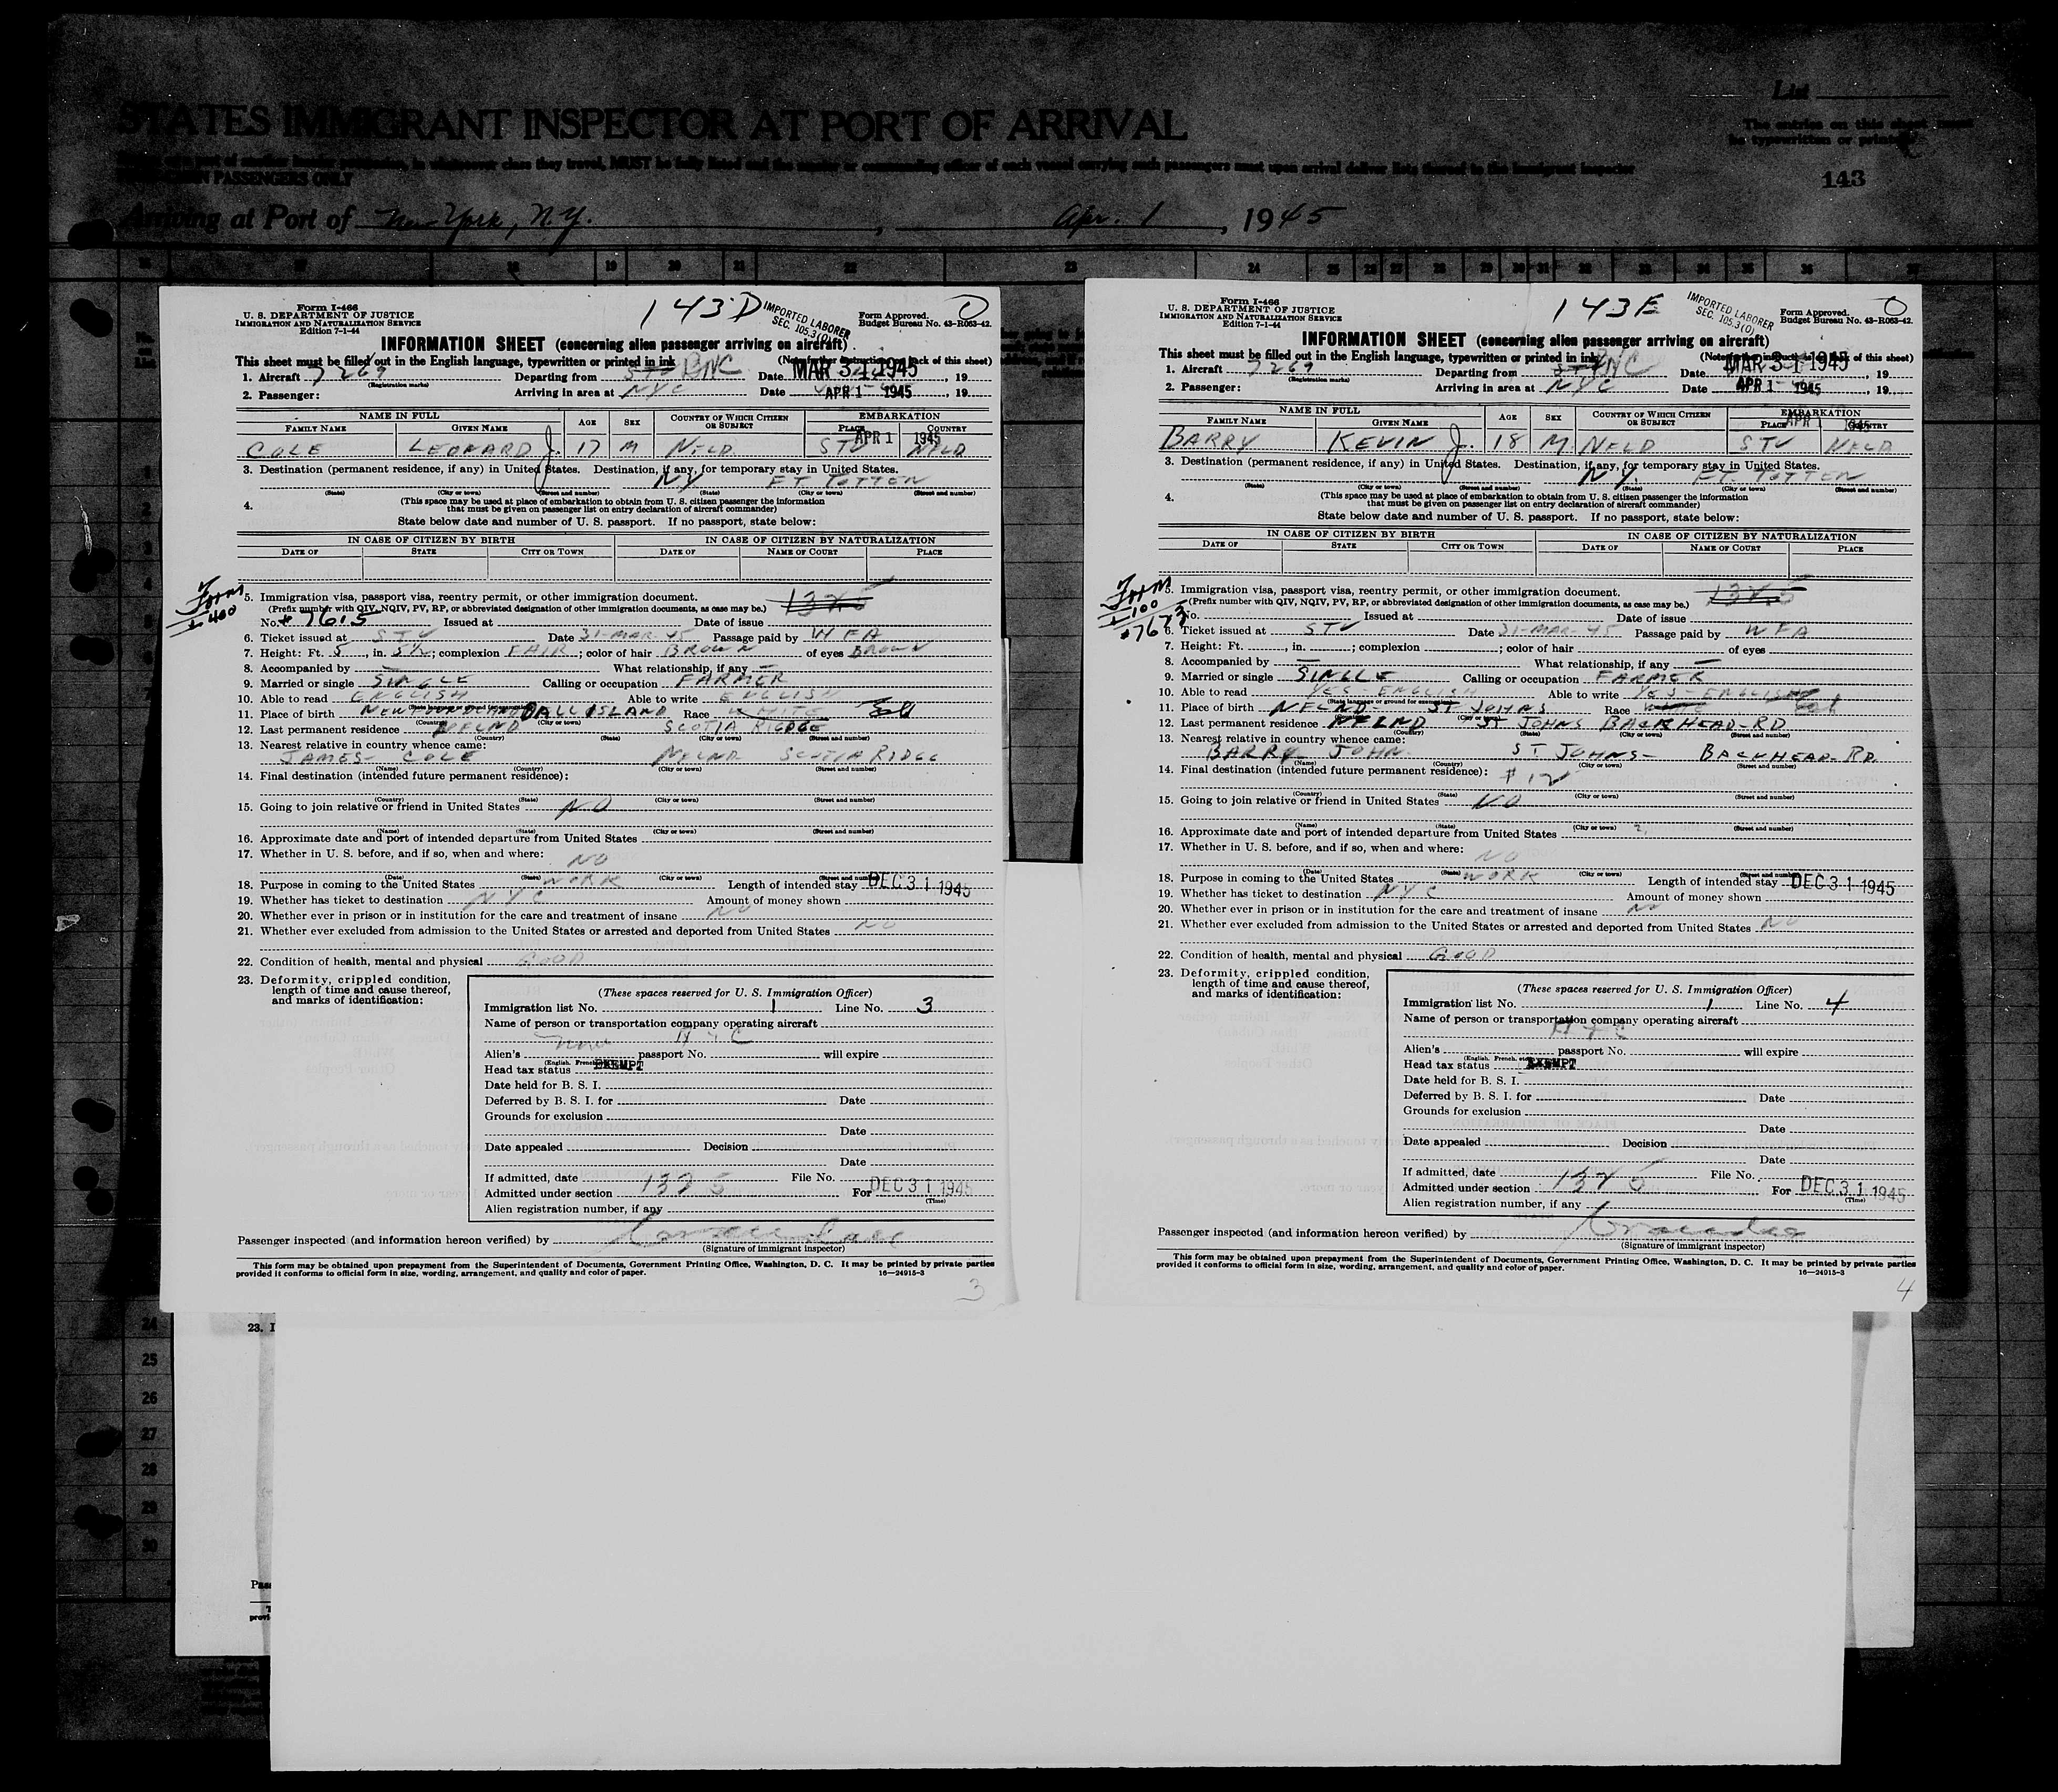 List
STATES IMMIGRANT INSPECTOR AT PORT OF ARRIVAL
The entries on this sheet must
be typewritten or printed
143
PASSENGERS ONLY
Arriving at Port of New York, N.Y. , Apr. 1 , 1945
Form I-466
U. S. DEPARTMENT OF JUSTICE
IMMIGRATION AND NATURALIZATION SERVICE
Edition 7-1-44
143-D
IMPORTED LABORER
SEC. 105.3(O)
Form Approved.
Budget Bureau No. 43-R063-42.
INFORMATION SHEET (concerning alien passenger arriving on aircraft)
This sheet must be filled out in the English language, typewritten or printed in ink
1. Aircraft 7269 Departing from BNC Date MAR 31 1945, 19
(Registration marks)
2. Passenger: Arriving in area at NYC Date APR 1 1945, 19
NAME IN FULL AGE SEX COUNTRY OF WHICH CITIZEN OR SUBJECT EMBARKATION
FAMILY NAME GIVEN NAME PLACE COUNTRY
APR 1 1945
COLE LEONARD J. 17 M NFLD STV NFLD
3. Destination (permanent residence, if any) in United States. Destination, if any, for temporary stay in United States.
NY FT TOTTEN
(State) (City or town) (Street and number) (State) (City or town) (Street and number)
4. (This space may be used at place of embarkation to obtain from U. S. citizen passenger the information
that must be given on passenger list on entry declaration of aircraft commander)
State below date and number of U. S. passport. If no passport, state below:
IN CASE OF CITIZEN BY BIRTH IN CASE OF CITIZEN BY NATURALIZATION
DATE OF STATE CITY OR TOWN DATE OF NAME OF COURT PLACE
Form
I-400
5. Immigration visa, passport visa, reentry permit, or other immigration document.
(Prefix number with QIV, NQIV, PV, RP, or abbreviated designation of other immigration documents, as case may be.)
No. # 7615 Issued at Date of issue
6. Ticket issued at STV Date 31-MAR-45 Passage paid by WFA
7. Height: Ft. 5, in. 5½; complexion FAIR; color of hair BROWN of eyes BROWN
8. Accompanied by — What relationship, if any —
9. Married or single SINGLE Calling or occupation FARMER
10. Able to read ENGLISH Able to write ENGLISH
11. Place of birth NEWFOUNDLAND BALL ISLAND Race WHITE
12. Last permanent residence NFLND SCOTIA RIDGE
13. Nearest relative in country whence came:
JAMES COLE NFLND SCOTIA RIDGE
(Name) (Country) (City or town) (Street and number)
14. Final destination (intended future permanent residence):
(Country) (State) (City or town) (Street and number)
15. Going to join relative or friend in United States NO
(Name) (State) (City or town) (Street and number)
16. Approximate date and port of intended departure from United States
17. Whether in U. S. before, and if so, when and where:
NO
(Date) (State) (City or town) (Street and number)
18. Purpose in coming to the United States WORK Length of intended stay DEC 31 1945
19. Whether has ticket to destination NYC Amount of money shown
20. Whether ever in prison or in institution for the care and treatment of insane NO
21. Whether ever excluded from admission to the United States or arrested and deported from United States NO
22. Condition of health, mental and physical GOOD
23. Deformity, crippled condition,
length of time and cause thereof,
and marks of identification:
(These spaces reserved for U. S. Immigration Officer)
Immigration list No. 1 Line No. 3
Name of person or transportation company operating aircraft
Alien's passport No. will expire
(English, French, etc.)
Head tax status EXEMPT
Date held for B. S. I.
Deferred by B. S. I. for Date
Grounds for exclusion
Date
Date appealed Decision
Date
If admitted, date File No.
Admitted under section 1325 For DEC 31 1945
(Time)
Alien registration number, if any
Passenger inspected (and information hereon verified) by
(Signature of immigrant inspector)
This form may be obtained upon prepayment from the Superintendent of Documents, Government Printing Office, Washington, D. C. It may be printed by private parties
provided it conforms to official form in size, wording, arrangement, and quality and color of paper. 16—24915-3
3
Form I-466
U. S. DEPARTMENT OF JUSTICE
IMMIGRATION AND NATURALIZATION SERVICE
Edition 7-1-44
143E
IMPORTED LABORER
SEC. 105.3(O)
Form Approved.
Budget Bureau No. 43-R063-42.
INFORMATION SHEET (concerning alien passenger arriving on aircraft)
This sheet must be filled out in the English language, typewritten or printed in ink
1. Aircraft 7269 Departing from BNC Date MAR 31 1945, 19
(Registration marks)
2. Passenger: Arriving in area at NYC Date APR 1 1945, 19
NAME IN FULL AGE SEX COUNTRY OF WHICH CITIZEN OR SUBJECT EMBARKATION
FAMILY NAME GIVEN NAME PLACE COUNTRY
BARRY KEVIN J. 18 M NFLD STV NFLD
3. Destination (permanent residence, if any) in United States. Destination, if any, for temporary stay in United States.
N.Y. FT. TOTTEN
(State) (City or town) (Street and number) (State) (City or town) (Street and number)
4. (This space may be used at place of embarkation to obtain from U. S. citizen passenger the information
that must be given on passenger list on entry declaration of aircraft commander)
State below date and number of U. S. passport. If no passport, state below:
IN CASE OF CITIZEN BY BIRTH IN CASE OF CITIZEN BY NATURALIZATION
DATE OF STATE CITY OR TOWN DATE OF NAME OF COURT PLACE
Form
I-100
#7673
5. Immigration visa, passport visa, reentry permit, or other immigration document.
(Prefix number with QIV, NQIV, PV, RP, or abbreviated designation of other immigration documents, as case may be.)
No. Issued at Date of issue
6. Ticket issued at STV Date 31-MAR-45 Passage paid by WFA
7. Height: Ft. , in. ; complexion ; color of hair of eyes
8. Accompanied by — What relationship, if any —
9. Married or single SINGLE Calling or occupation FARMER
10. Able to read YES-ENGLISH Able to write YES-ENGLISH
11. Place of birth NFLND ST JOHNS Race
12. Last permanent residence NFLND ST JOHNS BACKHEAD-RD
13. Nearest relative in country whence came:
BARRY JOHN ST JOHNS- BACKHEAD-RD.
(Name) (Country) (City or town) (Street and number)
14. Final destination (intended future permanent residence): #12
(Country) (State) (City or town) (Street and number)
15. Going to join relative or friend in United States NO
(Name) (State) (City or town) (Street and number)
16. Approximate date and port of intended departure from United States
17. Whether in U. S. before, and if so, when and where:
NO
(Date) (State) (City or town) (Street and number)
18. Purpose in coming to the United States WORK Length of intended stay DEC 31 1945
19. Whether has ticket to destination NYC Amount of money shown
20. Whether ever in prison or in institution for the care and treatment of insane NO
21. Whether ever excluded from admission to the United States or arrested and deported from United States NO
22. Condition of health, mental and physical GOOD
23. Deformity, crippled condition,
length of time and cause thereof,
and marks of identification:
(These spaces reserved for U. S. Immigration Officer)
Immigration list No. 1 Line No. 4
Name of person or transportation company operating aircraft
Alien's passport No. will expire
(English, French, etc.)
Head tax status EXEMPT
Date held for B. S. I.
Deferred by B. S. I. for Date
Grounds for exclusion
Date
Date appealed Decision
Date
If admitted, date File No.
Admitted under section For DEC 31 1945
(Time)
Alien registration number, if any
Passenger inspected (and information hereon verified) by
(Signature of immigrant inspector)
This form may be obtained upon prepayment from the Superintendent of Documents, Government Printing Office, Washington, D. C. It may be printed by private parties
provided it conforms to official form in size, wording, arrangement, and quality and color of paper. 16—24915-3
4
24
23. I
25
26
27
28
29
30